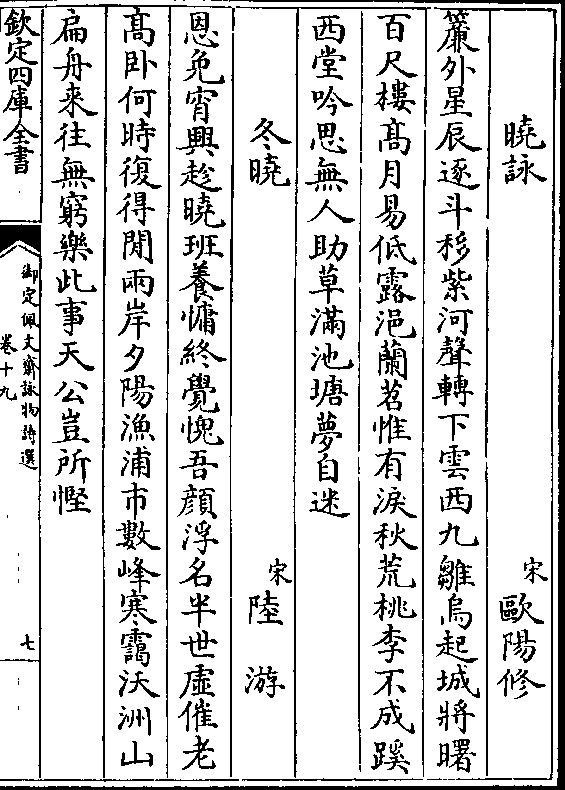 曉詠
宋 歐陽修
簾外星辰逐斗移紫河聲轉下雲西九雛烏起城將曙
百尺樓髙月易低露浥蘭苕惟有淚秋荒桃李不成蹊
西堂吟思無人助草滿池塘夢自迷
冬曉
宋 陸游
恩免宵興趁曉班養慵終覺愧吾顔浮名半世虛催老
髙卧何時復得閒兩岸夕陽漁浦市數峰寒靄沃洲山
扁舟来往無窮樂此事天公豈所慳
欽定四庫全書
御定佩文齋詠物詩選
卷十九
七